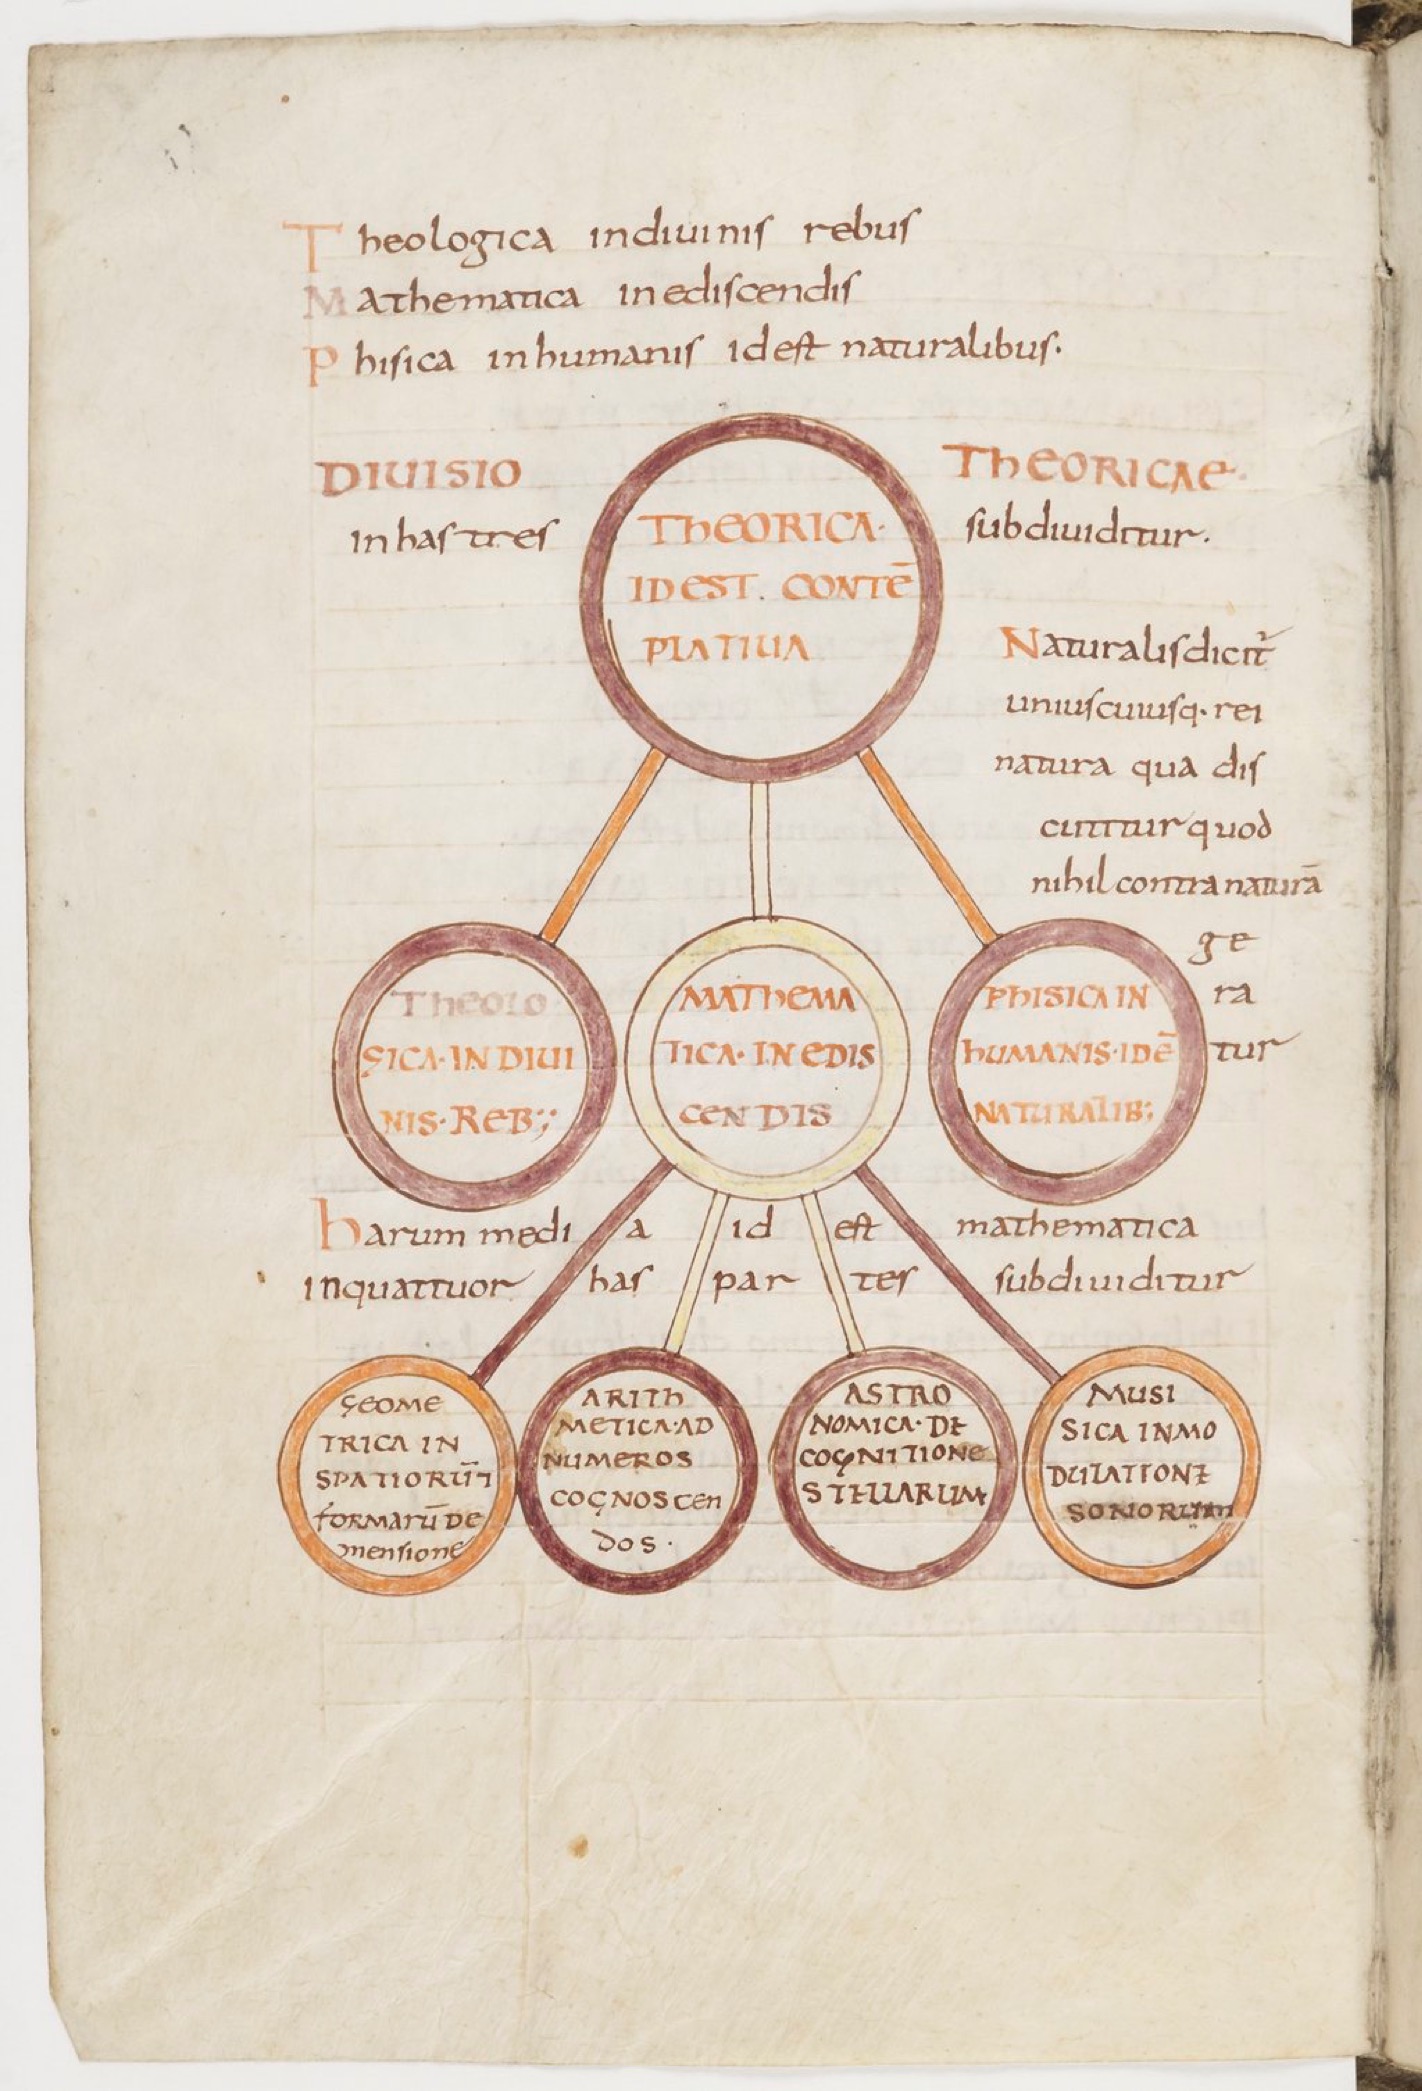 Theologica indiuinis rebus
Mathematica inediscendis
Phisica inhumanis idest naturalibus.
DIUISIO THEORICAE.
inhas tres subdiuiditur.
THEORICA.
IDEST. CONTĒ
PLATIUA
Naturalis dicit̄
uniuscuiusq. rei
natura qua dis
cutitur quod
nihil contra naturā
ge
ra
tur
THEOLO
GICA. IN DIUI
NIS. REB;;
MATHEMA
TICA. IN EDIS
CENDIS
PHISICA IN
HUMANIS. IDĒ
NATURALIB;
harum medi a id est mathematica
inquattuor has par tes subdiuiditur
GEOME
TRICA IN
SPATIORŪ
formarū DE
mensione
ARITH
METICA. AD
NUMEROS
COGNOSCEN
DOS.
ASTRO
NOMICA. DE
COGNITIONE
STELLARUM
MUSI
SICA INMO
DULATIONE
SONORUM